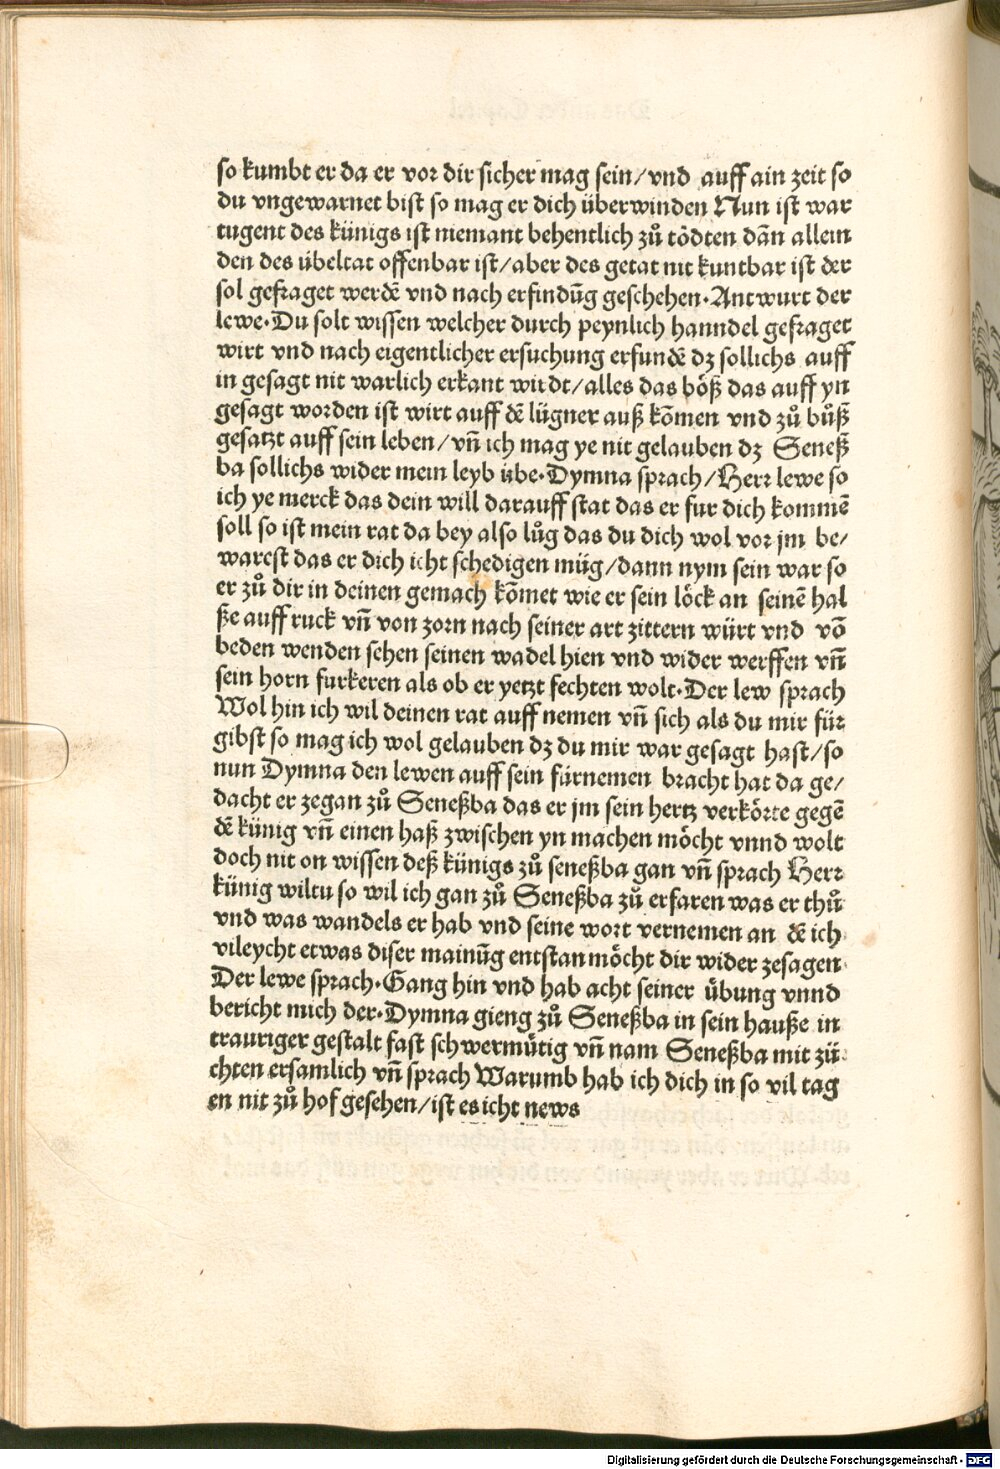 so kumbt er da er vor dir sicher mag sein/vnd auff ain zeit so
du vngewarnet bist so mag er dich überwinden Nun ist war
tugent des künigs ist niemant behentlich zů tödten dān allein
den des übeltat offenbar ist/aber des getat nit kuntbar ist der
sol gefraget werdē vnd nach erfindūg geschehen·Antwurt der
lewe·Du solt wissen welcher durch peynlich hanndel gefraget
wirt vnd nach eigentlicher ersuchung erfundē dz sollichs auff
in gesagt nit warlich erkant wirdt/alles das böß das auff yn
gesagt worden ist wirt auff dē lügner auß kōmen vnd zů bůß
gesatzt auff sein leben/vn̄ ich mag ye nit gelauben dz Seneß
ba sollichs wider mein leyb übe·Dymna sprach/Herr lewe so
ich ye merck das dein will darauff stat das er fur dich kommē
soll so ist mein rat da bey also lůg das du dich wol vor jm be/
warest das er dich icht schedigen müg/dann nym sein war so
er zů dir in deinen gemach kōmet wie er sein löck an seinē hal
ße auff ruck vn̄ von zorn nach seiner art zittern würt vnd vō
beden wenden sehen seinen wadel hien vnd wider werffen vn̄
sein horn furkeren als ob er yetzt fechten wolt·Der lew sprach
Wol hin ich wil deinen rat auff nemen vn̄ sich als du mir für
gibst so mag ich wol gelauben dz du mir war gesagt hast/so
nun Dymna den lewen auff sein fürnemen bracht hat da ge/
dacht er zegan zů Seneßba das er jm sein hertz verkörte gegē
dē künig vn̄ einen haß zwischen yn machen möcht vnnd wolt
doch nit on wissen deß künigs zů seneßba gan vn̄ sprach Herr
künig wiltu so wil ich gan zů Seneßba zů erfaren was er thů
vnd was wandels er hab vnd seine wort vernemen an dē ich
vileycht etwas diser mainūg entstan möcht dir wider zesagen·
Der lewe sprach·Gang hin vnd hab acht seiner übung vnnd
bericht mich der·Dymna gieng zů Seneßba in sein hauße in
trauriger gestalt fast schwermütig vn̄ nam Seneßba mit zü
chten ersamlich vn̄ sprach Warumb hab ich dich in so vil tag
en nit zů hof gesehen/ist es icht news
Digitalisierung gefördert durch die Deutsche Forschungsgemeinschaft - DFG